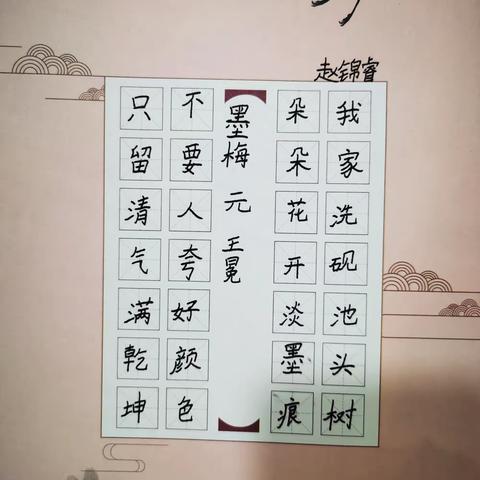 赵锦睿
墨梅 元 王冕
我家洗砚池头树
朵朵花开淡墨痕
不要人夸好颜色
只留清气满乾坤